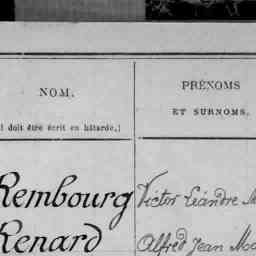 NOM.
l doit être écrit en bâtarde.)
PRÉNOMS
ET SURNOMS.
Rembourg Victor Léandre
Renard Alfred Jean